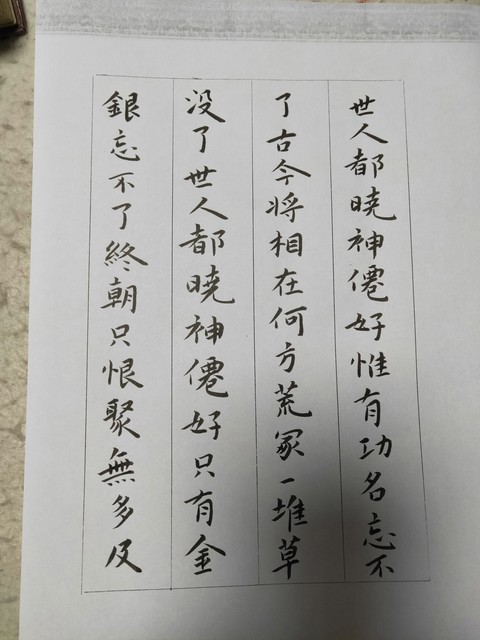 世人都曉神僊好惟有功名忘不
了古今将相在何方荒冢一堆草
没了世人都曉神僊好只有金
銀忘不了終朝只恨聚無多及